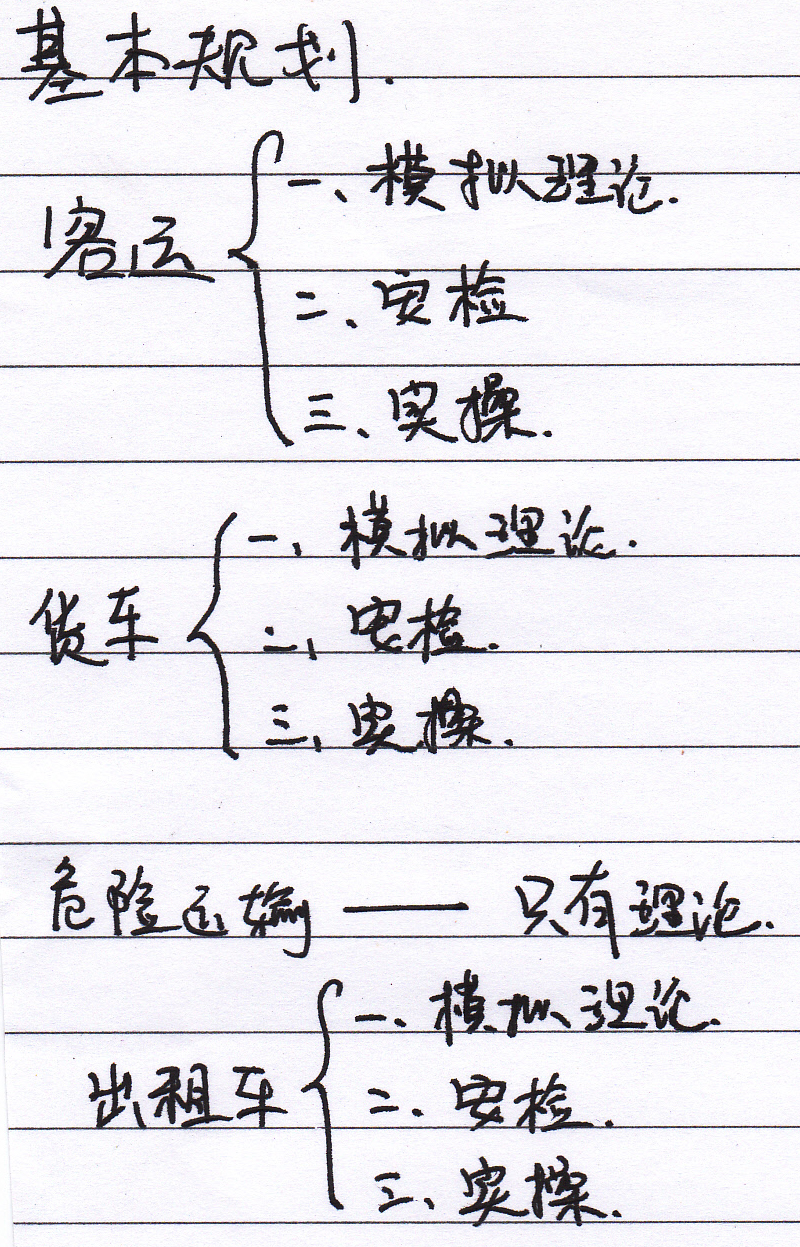 基本规划.
客运
一、模拟理论.
二、安检
三、实操.
货车
一、模拟理论.
二、安检.
三、实操.
危险运输——只有理论.
出租车
一、模拟理论.
二、安检.
三、实操.